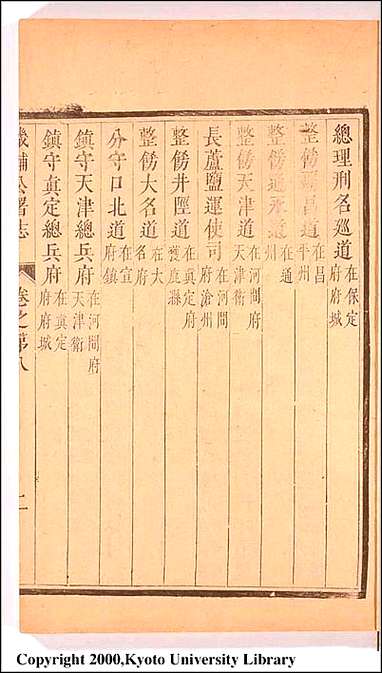 總理刑名廵道在保定府府城
整飭霸昌道在昌平州
整飭通永道在通州
整飭天津道在河間府天津衛
長蘆鹽運使司在河間府滄州
整飭井陘道在真定府獲鹿縣
整飭大名道在大名府
分守口北道在宣府鎮
鎮守天津總兵府在河間府天津衛
鎮守真定總兵府在真定府府城
畿輔公署志 卷之第八
Copyright 2000,Kyoto University Library